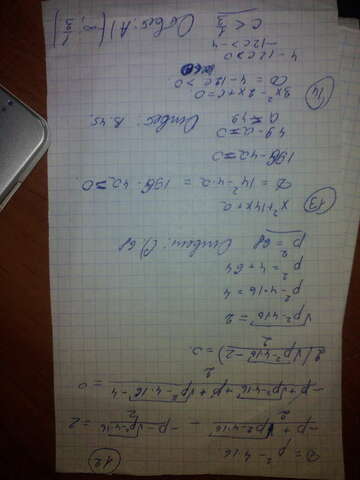 12
D = p² - 4·16
(-p + √(p²-4·16))/2 - (-p - √(p²-4·16))/2 = 2
(-p + √(p²-4·16) + p + √(p²-4·16) - 4)/2 = 0
2(√(p²-4·16) - 2)/2 = 0
√(p²-4·16) = 2
p² - 4·16 = 4
p² = 4 + 64
p² = 68 Ответ: 68
13
x² + 14x + a
D = 14² - 4·a = 196 - 4a ≥ 0
196 - 4a ≥ 0
49 - a ≥ 0
a ≤ 49 Ответ: B.
14
3x² - 2x + c = 0
D = 4 - 12c > 0
4 - 12c > 0
-12c > -4
c < 1/3 Ответ: A) (-∞; 1/3)